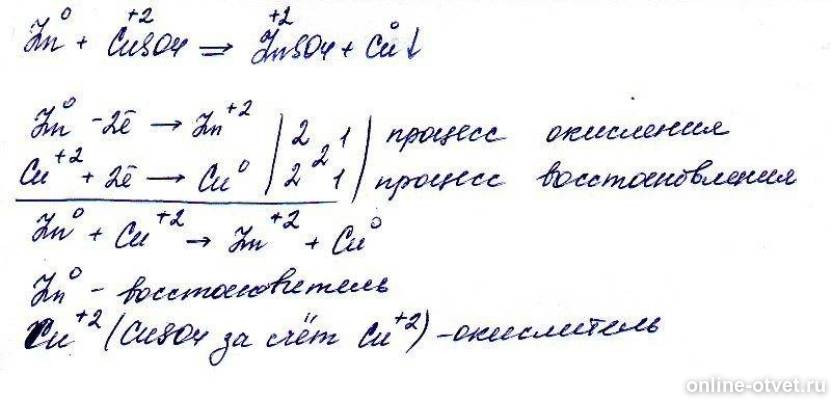 Zn⁰ + Cu⁺²SO4 = Zn⁺²SO4 + Cu⁰↓
Zn⁰ -2ē → Zn⁺² | 2 | 1 | процесс окисления
Cu⁺² + 2ē → Cu⁰ | 2 2 1 | процесс восстановления
Zn⁰ + Cu⁺² → Zn⁺² + Cu⁰
Zn⁰ - восстановитель
Cu⁺² (CuSO4 за счёт Cu⁺²) - окислитель
online-otvet.ru